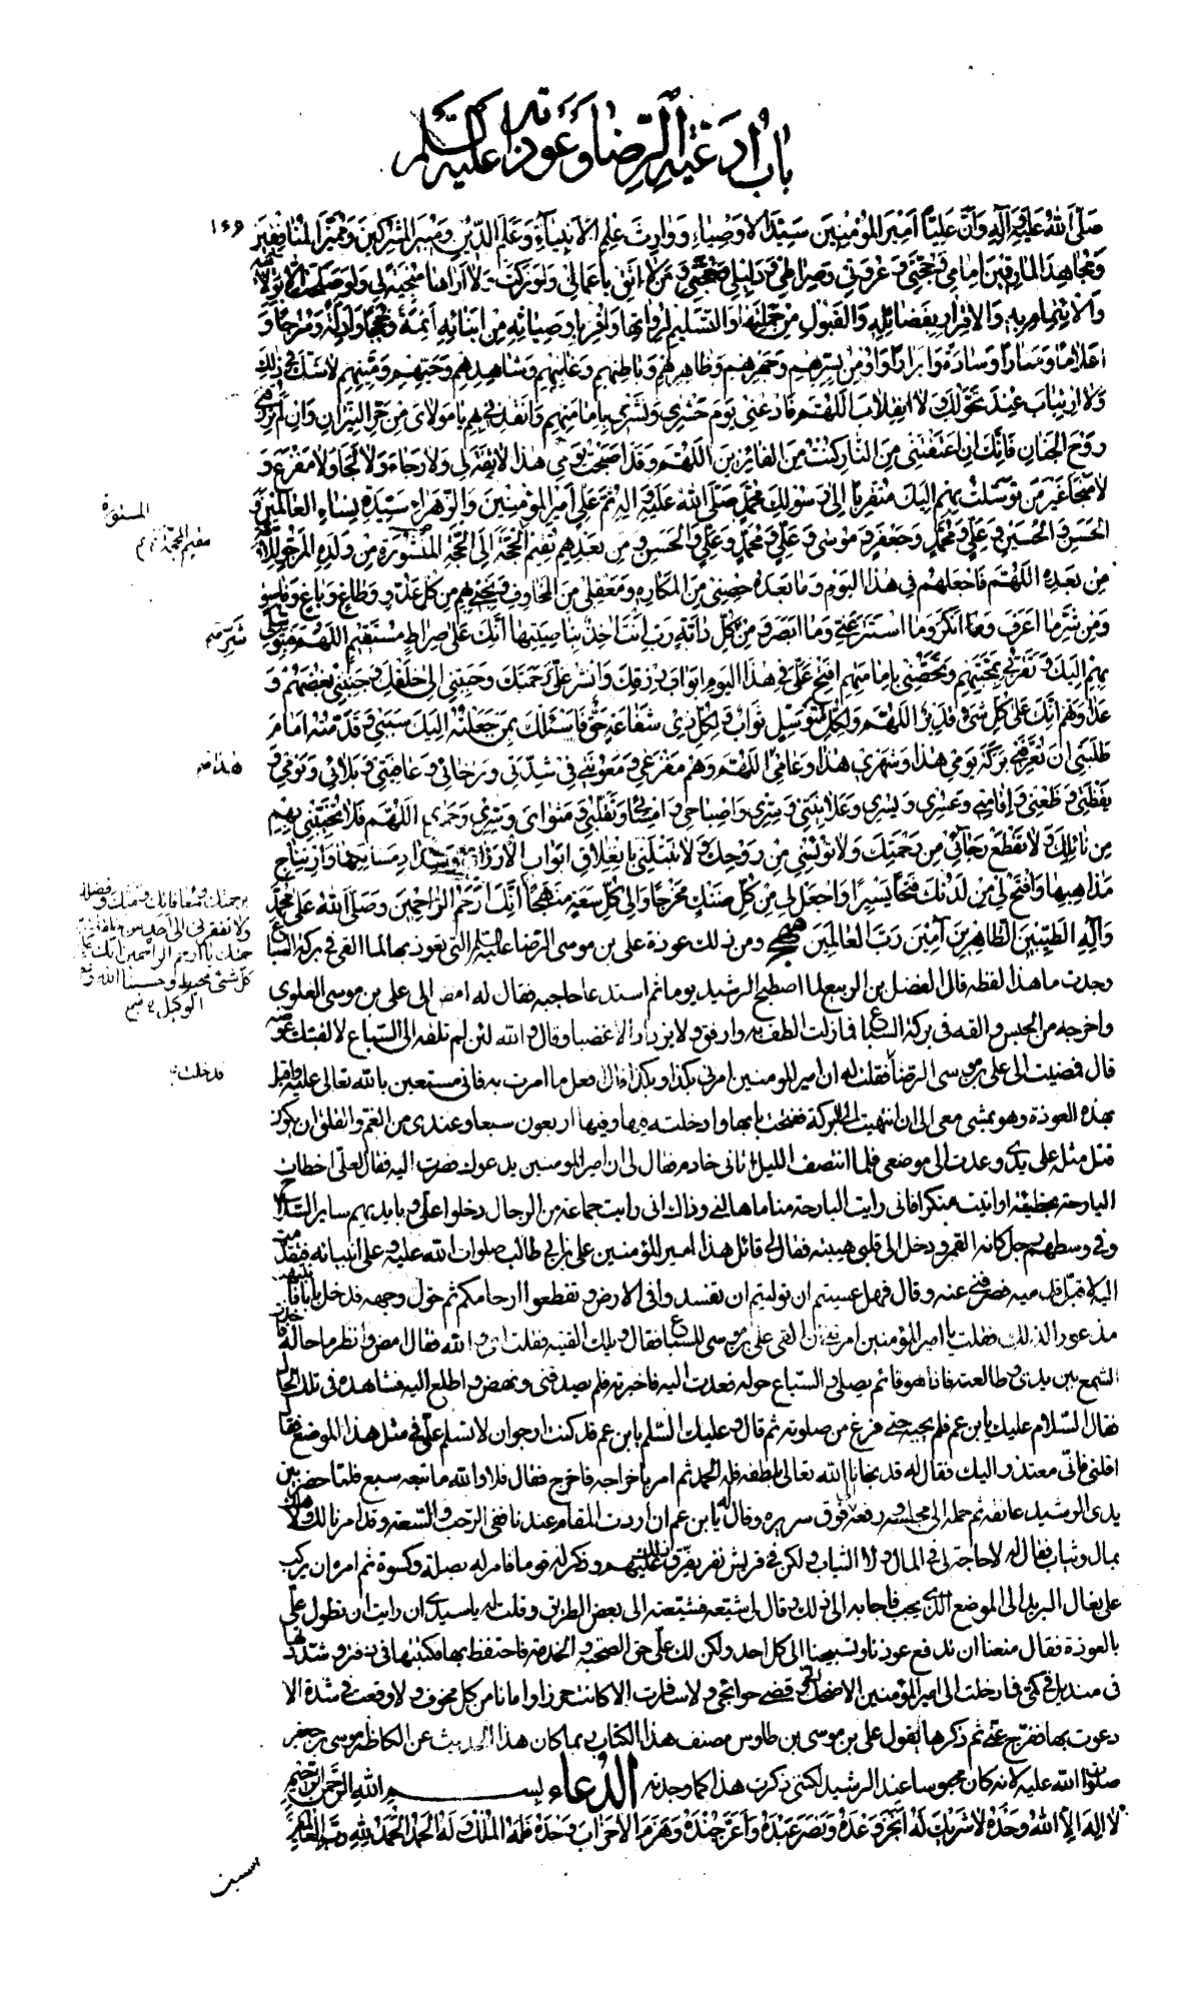 باب ادعية الرضا وعوذاته عليه السلم
١٤٩
صَلَّى اللهُ عَلَيْهِ وَآلِهِ وَاَنَّ عَلِيّاً اَمِيرَ الْمُؤْمِنِينَ سَيِّدَ الْاَوْصِيَاءِ وَوَارِثَ عِلْمِ الْاَنْبِيَاءِ وَعَلَمَ الدِّينِ وَمُبِيرَ الْمُشْرِكِينَ وَمُمَيِّزَ الْمُنَافِقِينَ
وَمُجَاهِدَ الْمَارِقِينَ اِمَامِي وَحُجَّتِي وَعُرْوَتِي وَصِرَاطِي وَدَلِيلِي وَمَحَجَّتِي وَمَنْ لَا اَثِقُ بِاَعْمَالِي وَلَوْ زَكَتْ وَلَا اَرَاهَا مُنْجِيَةً لِي وَلَوْ صَلُحَتْ اِلَّا بِوَلَايَتِهِ
وَالْاِيتِمَامِ بِهِ وَالْاِقْرَارِ بِفَضَائِلِهِ وَالْقَبُولِ مِنْ حَمَلَتِهَا وَالتَّسْلِيمِ لِرُوَاتِهَا وَاُقِرُّ بِاَوْصِيَائِهِ مِنْ اَبْنَائِهِ اَئِمَّةً وَحُجَجاً وَاَدِلَّةً وَسُرُجاً وَ
اَعْلَاماً وَمَنَاراً وَسَادَةً وَاَبْرَاراً وَاُومِنُ بِسِرِّهِمْ وَجَهْرِهِمْ وَظَاهِرِهِمْ وَبَاطِنِهِمْ وَغَائِبِهِمْ وَشَاهِدِهِمْ وَحَيِّهِمْ وَمَيِّتِهِمْ لَا شَكَّ فِي ذَلِكَ
وَلَا ارْتِيَابَ عِنْدَ تَحَوُّلِكَ لَا انْقِلَابَ اَللّٰهُمَّ فَادْعُنِي يَوْمَ حَشْرِي وَنَشْرِي بِاِمَامَتِهِمْ وَاَنْقِذْنِي بِهِمْ يَا مَوْلَايَ مِنْ حَرِّ النِّيرَانِ وَاِنْ لَمْ تَرْزُقْنِي
رَوْحَ الْجِنَانِ فَاِنَّكَ اِنْ اَعْتَقْتَنِي مِنَ النَّارِ كُنْتُ مِنَ الْفَائِزِينَ اَللّٰهُمَّ وَقَدْ اَصْبَحْتُ يَوْمِي هٰذَا لَا ثِقَةَ لِي وَلَا رَجَاءَ وَلَا لَجَأَ وَلَا مَفْزَعَ وَ
لَا مَنْجَا غَيْرَ مَنْ تَوَسَّلْتُ بِهِمْ اِلَيْكَ مُتَقَرِّباً اِلَى رَسُولِكَ مُحَمَّدٍ صَلَّى اللهُ عَلَيْهِ وَآلِهِ ثُمَّ عَلِيٍّ اَمِيرِ الْمُؤْمِنِينَ وَالزَّهْرَاءِ سَيِّدَةِ نِسَاءِ الْعَالَمِينَ وَ
الْحَسَنِ وَالْحُسَيْنِ وَعَلِيٍّ وَمُحَمَّدٍ وَجَعْفَرٍ وَمُوسَى وَعَلِيٍّ وَمُحَمَّدٍ وَعَلِيٍّ وَالْحَسَنِ وَمَنْ بَعْدَهُمْ تُقِيمُ الْحُجَّةَ اِلَى الْحُجَّةِ الْمَنْشُورَةِ مِنْ وُلْدِهِ الْمَرْجُوِّ لِلْاُمَّةِ
مِنْ بَعْدِهِ اَللّٰهُمَّ فَاجْعَلْهُمْ فِي هٰذَا الْيَوْمِ وَمَا بَعْدَهُ حِصْنِي مِنَ الْمَكَارِهِ وَمَعْقِلِي مِنَ الْمَخَاوِفِ وَنَجِّنِي بِهِمْ مِنْ كُلِّ عَدُوٍّ وَطَاغٍ وَبَاغٍ وَفَاسِقٍ
وَمِنْ شَرِّ مَا اَعْرِفُ وَمَا اُنْكِرُ وَمَا اسْتَتَرَ عَنِّي وَمَا اُبْصِرُ وَمِنْ كُلِّ دَابَّةٍ رَبِّي آخِذٌ بِنَاصِيَتِهَا اِنَّكَ عَلَى صِرَاطٍ مُسْتَقِيمٍ اَللّٰهُمَّ فَبِتَوَسُّلِي
بِهِمْ اِلَيْكَ وَتَقَرُّبِي بِمَحَبَّتِهِمْ وَتَحَصُّنِي بِاِمَامَتِهِمْ افْتَحْ عَلَيَّ فِي هٰذَا الْيَوْمِ اَبْوَابَ رِزْقِكَ وَانْشُرْ عَلَيَّ رَحْمَتَكَ وَحَبِّبْنِي اِلَى خَلْقِكَ وَجَنِّبْنِي بُغْضَهُمْ وَ
عَدَاوَتَهُمْ اِنَّكَ عَلَى كُلِّ شَيْءٍ قَدِيرٌ اَللّٰهُمَّ وَلِكُلِّ مُتَوَسِّلٍ ثَوَابٌ وَلِكُلِّ ذِي شَفَاعَةٍ حَقٌّ فَاَسْئَلُكَ بِمَنْ جَعَلْتُهُ اِلَيْكَ سَبَبِي وَقَدَّمْتُهُ اَمَامَ
طَلِبَتِي اَنْ تُعَرِّفَنِي بَرَكَةَ يَوْمِي هٰذَا وَشَهْرِي هٰذَا وَعَامِي هٰذَا اَللّٰهُمَّ وَهُمْ مَفْزَعِي وَمَعُونَتِي فِي شِدَّتِي وَرَخَائِي وَعَافِيَتِي وَبَلَائِي وَنَوْمِي وَ
يَقْظَتِي وَظَعْنِي وَاِقَامَتِي وَعُسْرِي وَيُسْرِي وَعَلَانِيَتِي وَسِرِّي وَاِصْبَاحِي وَاِمْسَائِي وَتَقَلُّبِي وَمَثْوَايَ وَسِرِّي وَجَهْرِي اَللّٰهُمَّ فَلَا تُخَيِّبْنِي بِهِمْ
مِنْ نَائِلِكَ وَلَا تَقْطَعْ رَجَائِي مِنْ رَحْمَتِكَ وَلَا تُؤْيِسْنِي مِنْ رَوْحِكَ وَلَا تَبْتَلِيَنِّي بِاِغْلَاقِ اَبْوَابِ الْاَرْزَاقِ وَانْسِدَادِ مَسَالِكِهَا وَارْتِيَاجِ
مَذَاهِبِهَا وَافْتَحْ لِي مِنْ لَدُنْكَ فَتْحاً يَسِيراً وَاجْعَلْ لِي مِنْ كُلِّ ضَنْكٍ مَخْرَجاً وَاِلَى كُلِّ سَعَةٍ مَنْهَجاً اِنَّكَ اَرْحَمُ الرَّاحِمِينَ وَصَلَّى اللهُ عَلَى مُحَمَّدٍ
وَآلِهِ الطَّيِّبِينَ الطَّاهِرِينَ آمِينَ رَبَّ الْعَالَمِينَ ومن ذلك عوذة على بن موسى الرضا عليه السلم التى تعوذ بها لما القى فى بركة السباع
وجدت ما هذا لفظه قال الفضل بن الربيع لما اصطبح الرشيد يوما ثم استدعا حاجبه فقال له امض الى على بن موسى العلوى
واخرجه من الحبس والقه فى بركة السباع فما زلت الطف به وارفق ولا يزداد الا غضبا وقال والله لئن لم تلقه الى السباع لالقينك عوضه
قال فمضيت الى على بن موسى الرضا فقلت له ان امير المومنين امرنى بكذا وبكذا قال افعل ما امرت به فانى مستعين بالله تعالى عليه واقبل
بهذه العوذة وهو يمشى معى الى ان انتهيت الى البركة ففتحت بابها وادخلته فيها وفيها اربعون سبعا وعندى من الغم والقلق ان يكون
قتل مثله على يدى وعدت الى موضعى فلما انتصف الليل اتانى خادم فقال لى ان امير المومنين يدعوك فصرت اليه فقال لعلى اخطات
البارحة بخطيئة او اتيت منكرا فانى رايت البارحة مناما هالنى وذاك انى رايت جماعة من الرجال دخلوا على وبايديهم ساير السلاح
وفى وسطهم رجل كانه القمر ودخل الى قلبى هيبته فقال لى قائل هذا امير المؤمنين على بن ابى طالب صلوات الله عليه وعلى ابنائه فتقدمت
اليه لاقبل قدميه فصرفنى عنه وقال فهل عسيتم ان توليتم ان تفسدوا فى الارض وتقطعوا ارحامكم ثم حول وجهه فدخل بابا فانتبهت
مذعورا لذلك فقلت يا امير المؤمنين امرتنى ان القى على بن موسى للسباع فقال ويلك القيته فقلت اى والله فقال امض وانظر ما حاله فاخذت
الشمع بين يدى وطالعته فاذا هو قائم يصلى والسباع حوله فعدت اليه فاخبرته فلم يصدقنى ونهض واطلع اليه فشاهده فى تلك الحال
فقال السلام عليك يابن عم فلم يجبه حتى فرغ من صلوته ثم قال وعليك السلم يابن عم قد كنت ارجو ان لا تسلم على فى مثل هذا الموضع فقال
اقلنى فانى معتذر اليك فقال له قد نجانا الله تعالى بلطفه فله الحمد ثم امر باخراجه فاخرج فقال فلا والله ما تبعه سبع فلما حضر بين
يدى الرشيد عانقه ثم حمله الى مجلسه ورفعه فوق سريره وقال له يابن عم ان اردت المقام عندنا ففى الرحب والسعة وقد امرنا لك ولاهلك
بمال وثياب فقال له لا حاجة لى فى المال ولا الثياب ولكن فى قريش نفر يفرق ذلك عليهم وذكر له قوما فامر له بصلة وكسوة ثم امره ان يركب
على بغال البريد الى الموضع الذى يحب فاجابه الى ذلك وقال لى شيعه فشيعته الى بعض الطريق وقلت له يا سيدى ان رايت ان تطول على
بالعوذة فقال منعنا ان ندفع عوذنا وتسبيحنا الى كل احد ولكن لك على حق الصحبة والخدمة فاحتفظ بها فكتبتها فى دفتر وشددتها
فى منديل فى كمى فما دخلت الى امير المؤمنين الا ضحك الى وقضى حوائجى ولا سافرت الا كانت حرزا وامانا من كل مخوف ولا وقعت فى شدة الا
دعوت بها ففرج عنى ثم ذكرها يقول على بن موسى بن طاوس مصنف هذا الكتاب ربما كان هذا الحديث عن الكاظم موسى بن جعفر
صلوات الله عليه لانه كان محبوسا عند الرشيد لكننى ذكرت هذا كما وجدته الدُّعاء بسم الله الرحمن الرحيم
لَا اِلٰهَ اِلَّا اللهُ وَحْدَهُ لَا شَرِيكَ لَهُ اَنْجَزَ وَعْدَهُ وَنَصَرَ عَبْدَهُ وَاَعَزَّ جُنْدَهُ وَهَزَمَ الْاَحْزَابَ وَحْدَهُ فَلَهُ الْمُلْكُ وَلَهُ الْحَمْدُ الْحَمْدُ لِلّٰهِ رَبِّ الْعَالَمِينَ
المستورة
مقيم الحجة
شر
هذا
برحمتك ومعافاتك ومنك وفضلك
ولا تفقرنى الى احد من خلقك
يا ارحم الراحمين انك
كل شئ محيط وحسبنا الله ونعم
الوكيل
فدخلت